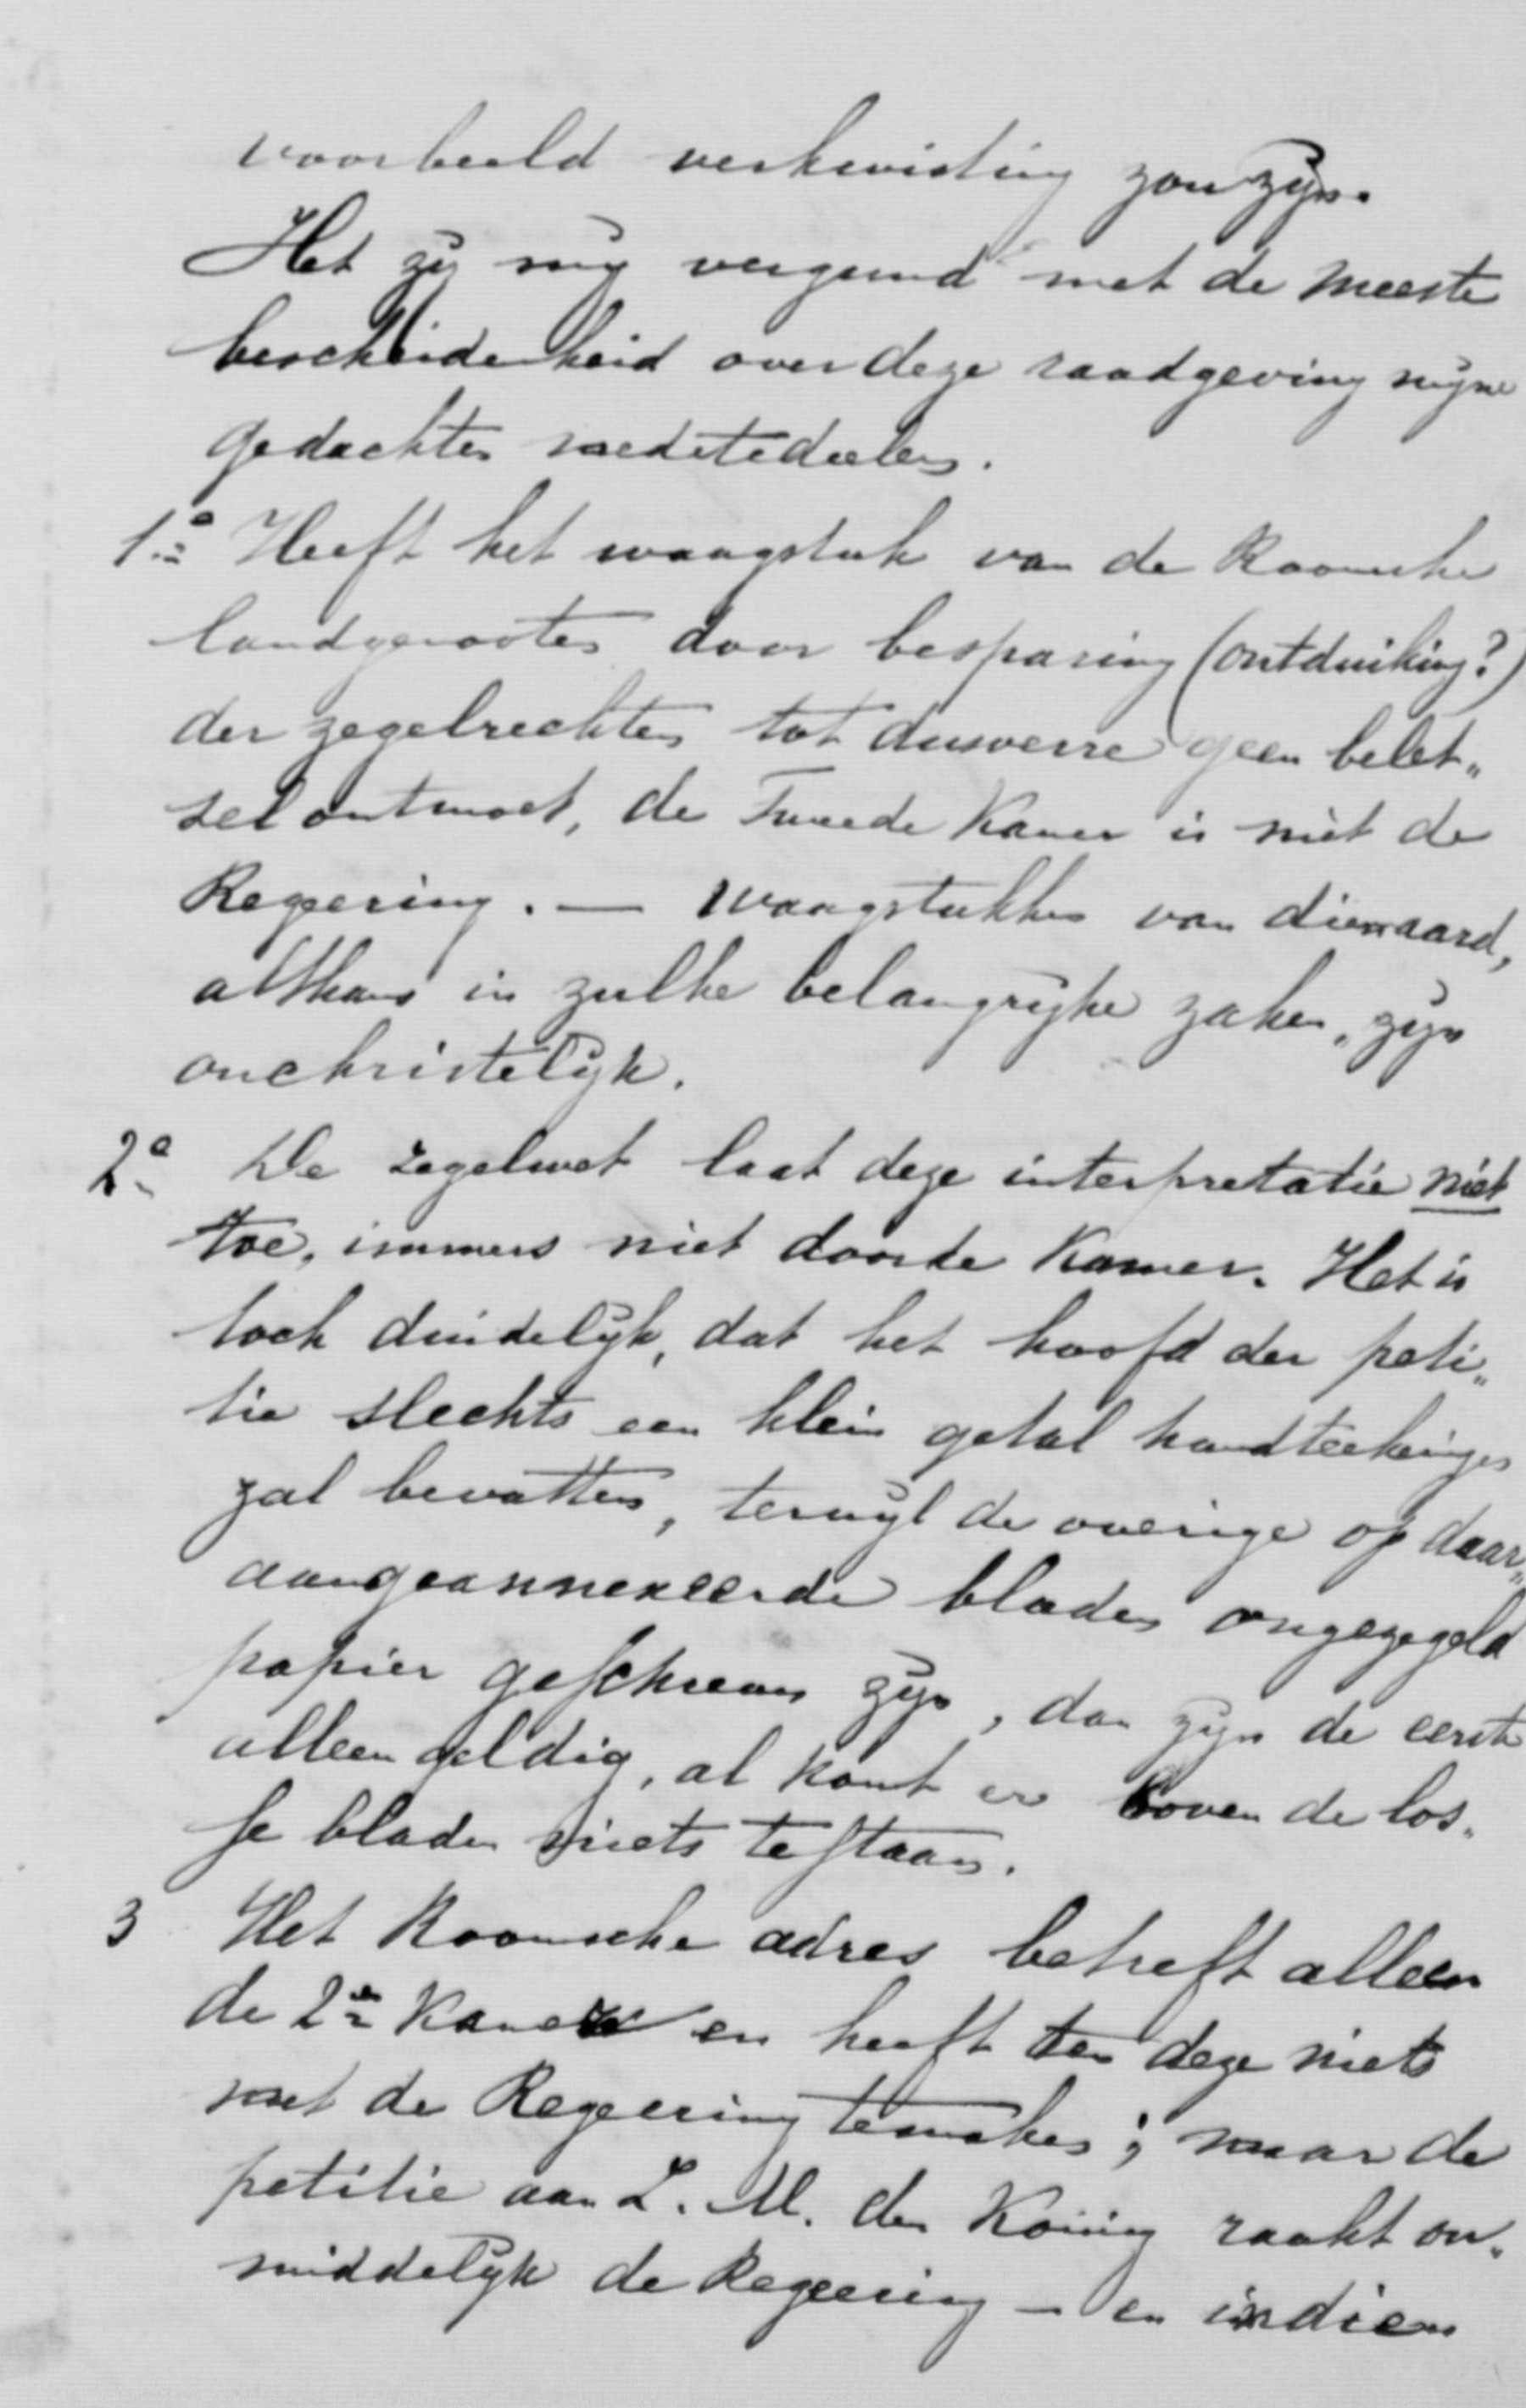 voorbeeld verkwisting zou zijn.
Het zij mij vergund met de meeste
bescheidenheid over deze raadgeving mijne
gedachten medetedeelen.
1.o Heeft het waagstuk van de Roomsche
landgenooten door besparing (ontduiking?)
der zegelrechten tot dusverre geen belet„
sel ontmoet, de Tweede Kamer is niet de
Regeering. — Waagstukken van dien aard,
althans in zulke belangrijke zaken, zijn
onchristelijk.
2.o De zegelwet laat deze interpretatie niet
toe, immers niet door de Kamer. Het is
toch duidelijk, dat het hoofd der peti„
tie slechts een klein getal handteekeningen
zal bevatten, terwijl de overige op daar„
aangeannexeerde bladen ongezegeld
papier geschreven zijn, dan zijn de eerste
alleen geldig, al komt er boven de los„
se bladen niets te staan.
3 Het Roomsche adres betreft alleen
de 2e Kamer en heeft ten deze niets
met de Regeering temaken; maar de
petitie aan Z. M. den Koning raakt on„
middelijk de Regeering – en indien